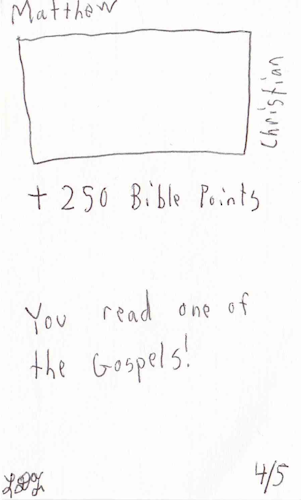 Matthew
Christian
+ 250 Bible Points
You read one of
the Gospels!
4/5